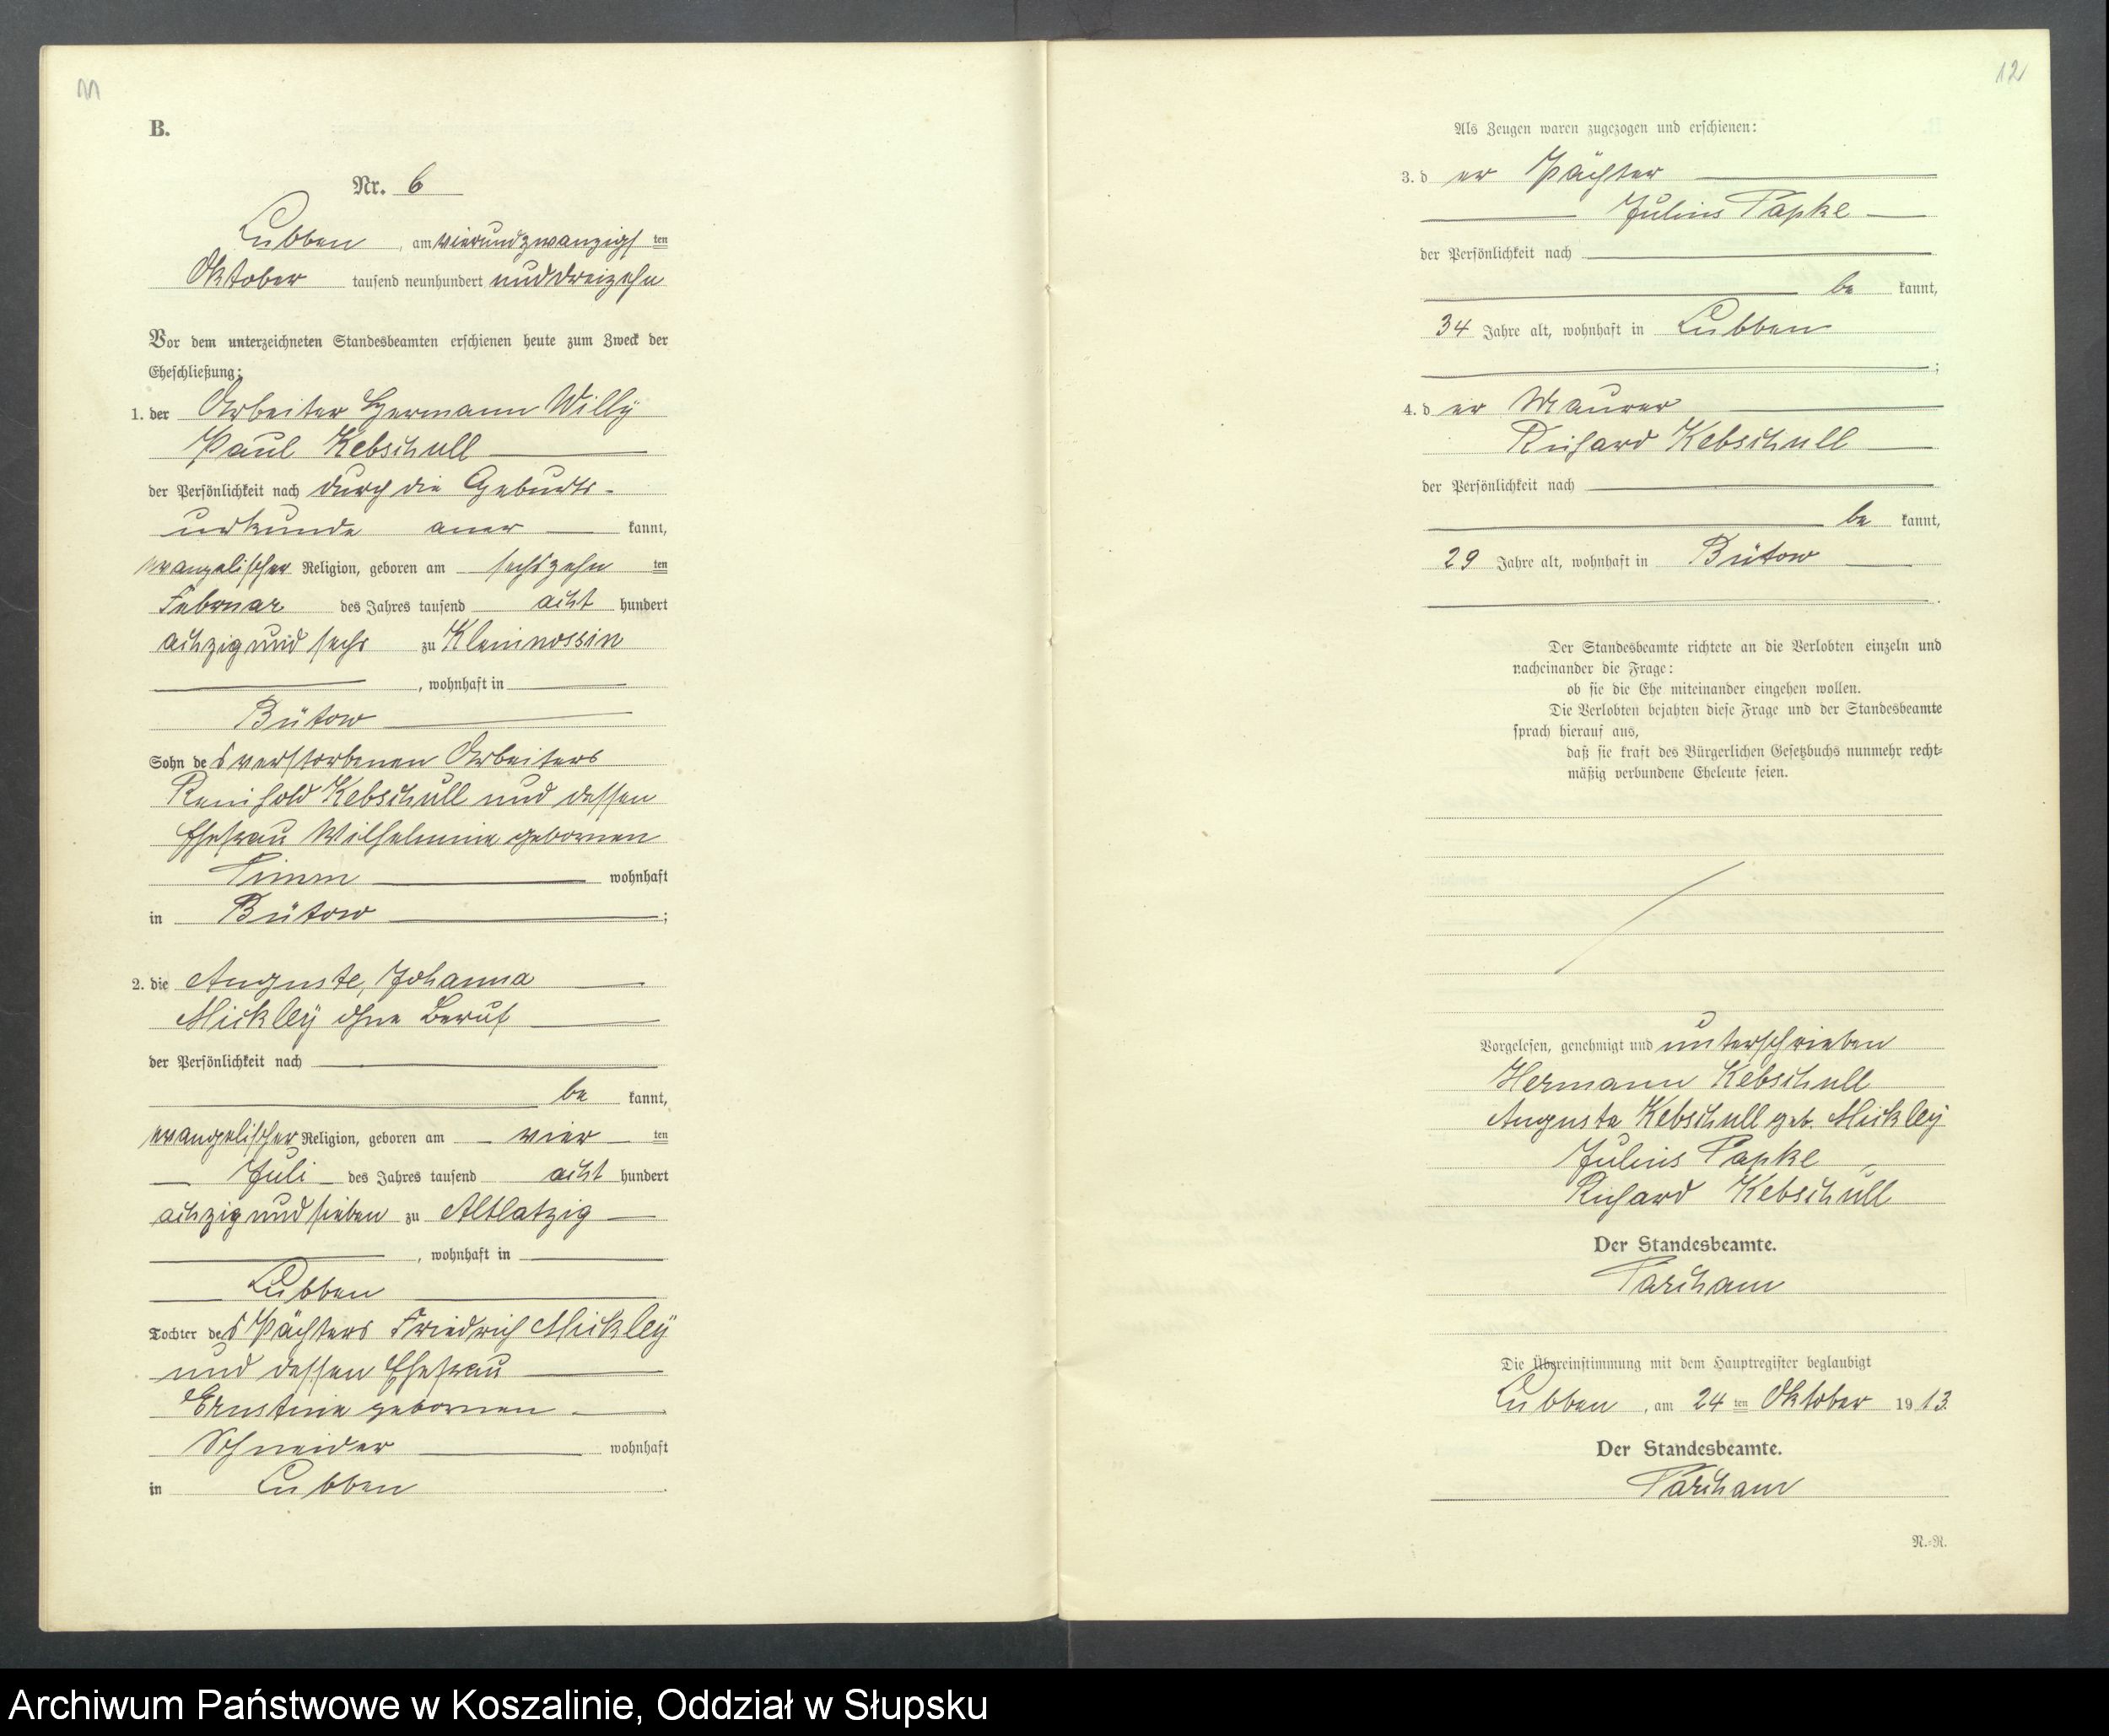 11
B.
Nr. 6
Lubben, am vierundzwanzigsten
Oktober tausend neunhundert und dreizehn
Vor dem unterzeichneten Standesbeamten erschienen heute zum Zweck der
Eheschließung:
1. der Arbeiter Hermann Willy
Paul Kebschull
der Persönlichkeit nach durch die Geburts-
urkunde aner kannt,
evangelischer Religion, geboren am sechszehn ten
Februar des Jahres tausend acht hundert
achzig und sechs zu Kleinnossin
, wohnhaft in
Bütow
Sohn des verstorbenen Arbeiters
Reinhold Kebschull und dessen
Ehefrau Wilhelmine gebornen
Timm wohnhaft
in Bütow ;
2. die Auguste, Johanna
Mickley ohne Beruf
der Persönlichkeit nach
be kannt,
evangelischer Religion, geboren am vier ten
Juli des Jahres tausend acht hundert
achzig und sieben zu Altlatzig
, wohnhaft in
Lubben
Tochter des Pächters Friedrich Mickley
und dessen Ehefrau
Ernstine gebornen
Schneider wohnhaft
in Lubben .
12
Als Zeugen waren zugezogen und erschienen:
3. d er Pächter
Julius Papke
der Persönlichkeit nach
be kannt,
34 Jahre alt, wohnhaft in Lubben
;
4. d er Maurer
Richard Kebschull
der Persönlichkeit nach
be kannt,
29 Jahre alt, wohnhaft in Bütow
.
Der Standesbeamte richtete an die Verlobten einzeln und
nacheinander die Frage:
ob sie die Ehe miteinander eingehen wollen.
Die Verlobten bejahten diese Frage und der Standesbeamte
sprach hierauf aus,
daß sie kraft des Bürgerlichen Gesetzbuchs nunmehr recht-
mäßig verbundene Eheleute seien.
Vorgelesen, genehmigt und unterschrieben
Hermann Kebschull
Auguste Kebschull geb. Mickley
Julius Papke
Richard Kebschull
Der Standesbeamte.
Parcham
Die Übereinstimmung mit dem Hauptregister beglaubigt
Lubben, am 24 ten Oktober 1913.
Der Standesbeamte.
Parcham
N.-R.
Archiwum Państwowe w Koszalinie, Oddział w Słupsku